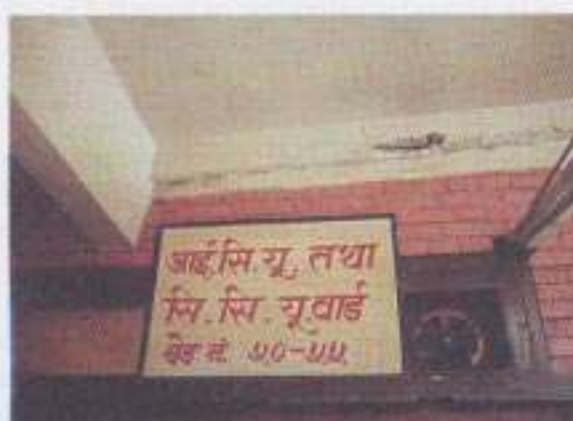 आई.सि.यू. तथा
सि.सि.यू.वार्ड
बेड नं. ५०-५५